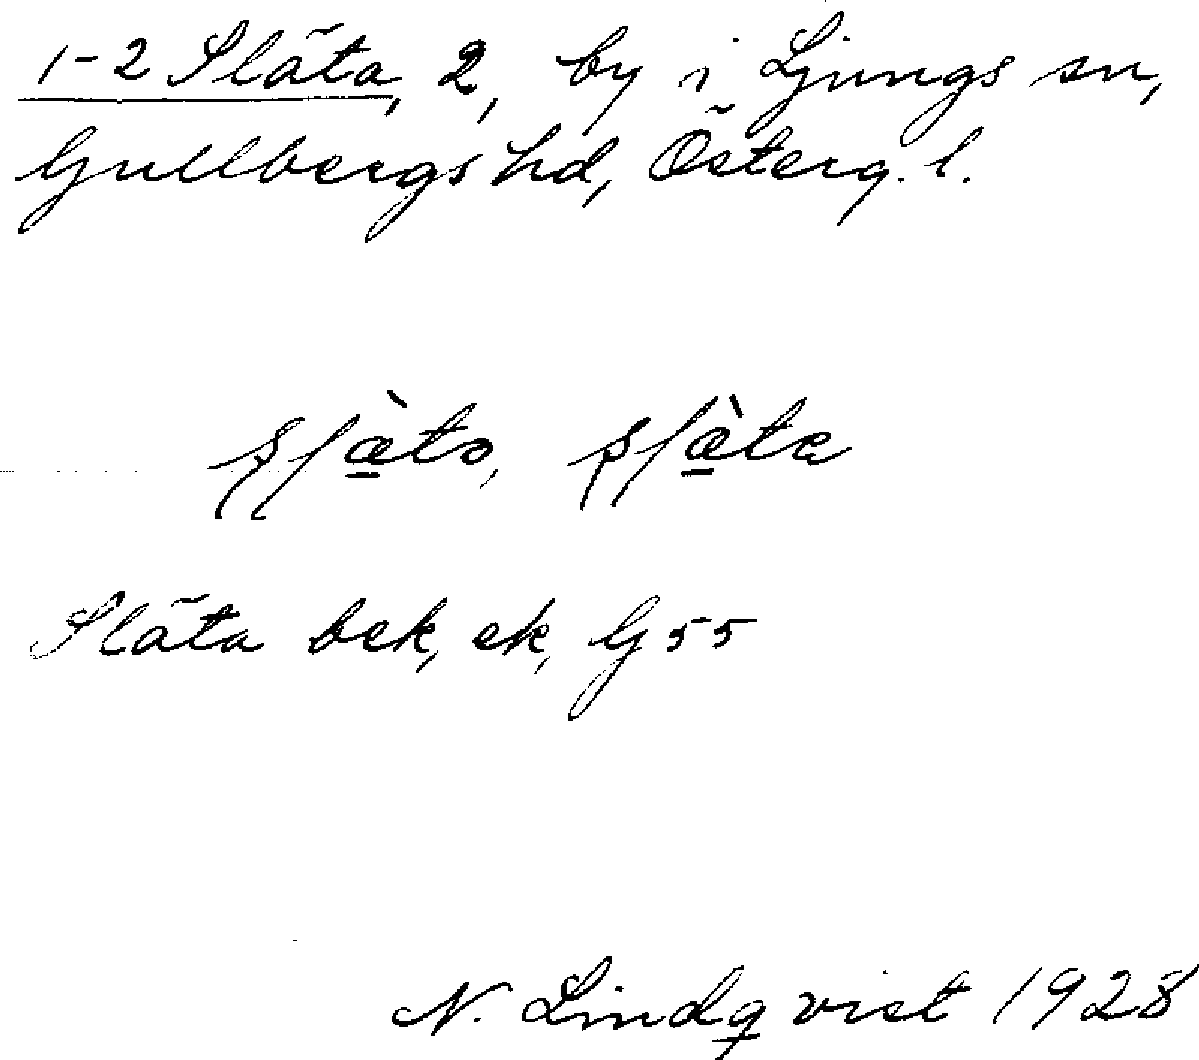 1-2 Släta, 2, by i Ljungs sn,
Gullbergs hd, Österg. l.
Släta bek, ek, G 55
N. Lindqvist 1928